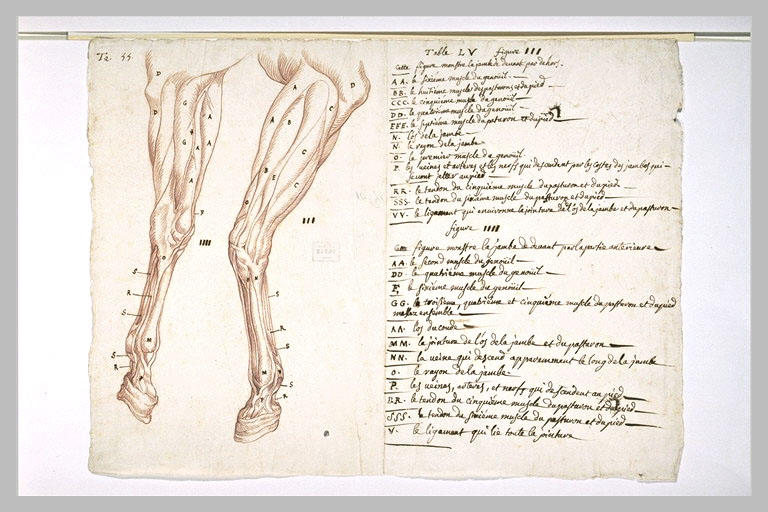 Ta. 55
Table LV figure III
Cette figure monstre la jambe de devant par dehors.
AA. le sixiéme muscle du genoüil
BB. le huitiéme muscle du pasturon et du pied
CCC. le cinquiéme muscle du genoüil
DD. le quatriéme muscle du genoüil
EEE. le septiéme muscle du pasturon et du pied
N. l'os de la jambe
N. le rayon de la jambe
O. le premier muscle du genoüil
P. les veines et arteres et les nerfs qui descendent par les costez des jambes qui
se vont jetter au pied
RR. le tendon du cinquiéme muscle du pasturon et du pied
SSS. le tendon du sixiéme muscle du pasturon et du pied
VV. le ligament qui environne la jointure de l'os de la jambe et du pasturon
figure IIII
Cette figure monstre la jambe de devant par la partie anterieure
AA. le second muscle du genoüil
DD. le quatriéme muscle du genoüil
le sixiéme muscle du genoüil
GG. le troisiéme, quatriéme et cinquiéme muscle du pasturon et du pied
ensemble
ΛΛ. l'os du coude
MM. la jointure de l'os de la jambe et du pasturon
NN. la veine qui descend apparemment le long de la jambe
O. le rayon de la jambe
P. les veines, arteres, et nerfs qui descendent au pied
RR. le tendon du cinquiéme muscle du pasturon et du pied
SSS. le tendon du sixiéme muscle du pasturon et du pied
V. le ligament qui lie toute la jointure
III
IIII